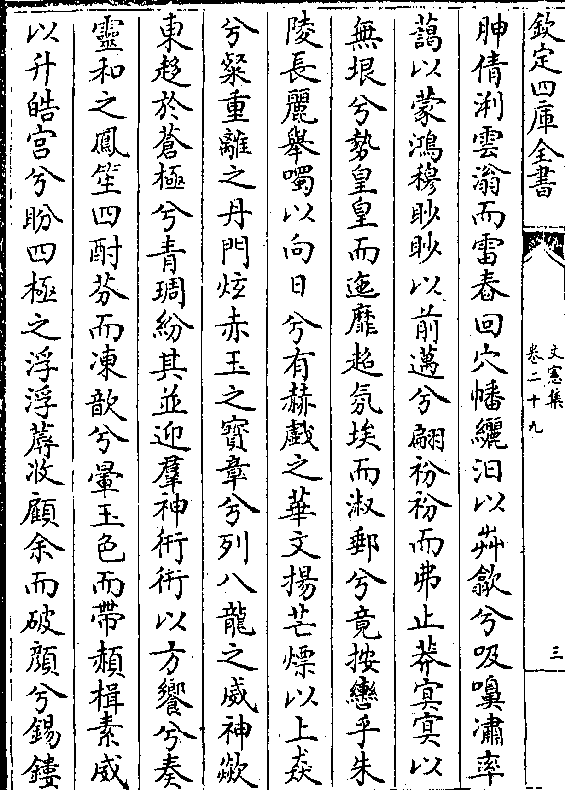 欽定四庫全書
文憲集
卷二十九
三
胂倩浰雲滃而雷舂回穴幡纚汩以茻歙兮吸嘷潚率
藹以蒙鴻穆眇眇以前邁兮翩衯衯而弗止莽寘寘以
無垠兮勢皇皇而迤靡超氛埃而淑郵兮竟按轡乎朱
陵長麗舉噣以向日兮有赫戲之華文揚芒熛以上焱
兮粲重離之丹門炫赤玉之寶章兮列八龍之威神歘
東趍於蒼極兮青琱紛其並迎羣神術術以方饗兮奏
靈和之鳳笙四酎芬而凍歆兮暈玉色而帶赬楫素威
以升皓宫兮盼四極之浮浮蓐收顧余而破顔兮錫鏤